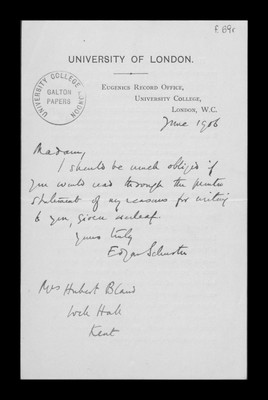 F. 89r
UNIVERSITY OF LONDON.
UNIVERSITY COLLEGE LONDON
GALTON
PAPERS
EUGENICS RECORD OFFICE,
UNIVERSITY COLLEGE,
LONDON, W.C.
June 1906
Madam,
I should be much obliged if
you would read through the printed
statement of my reasons for writing
to you, given overleaf
Yours truly
Edgar Schuster
Mrs Hubert Bland
Well Hall
Kent